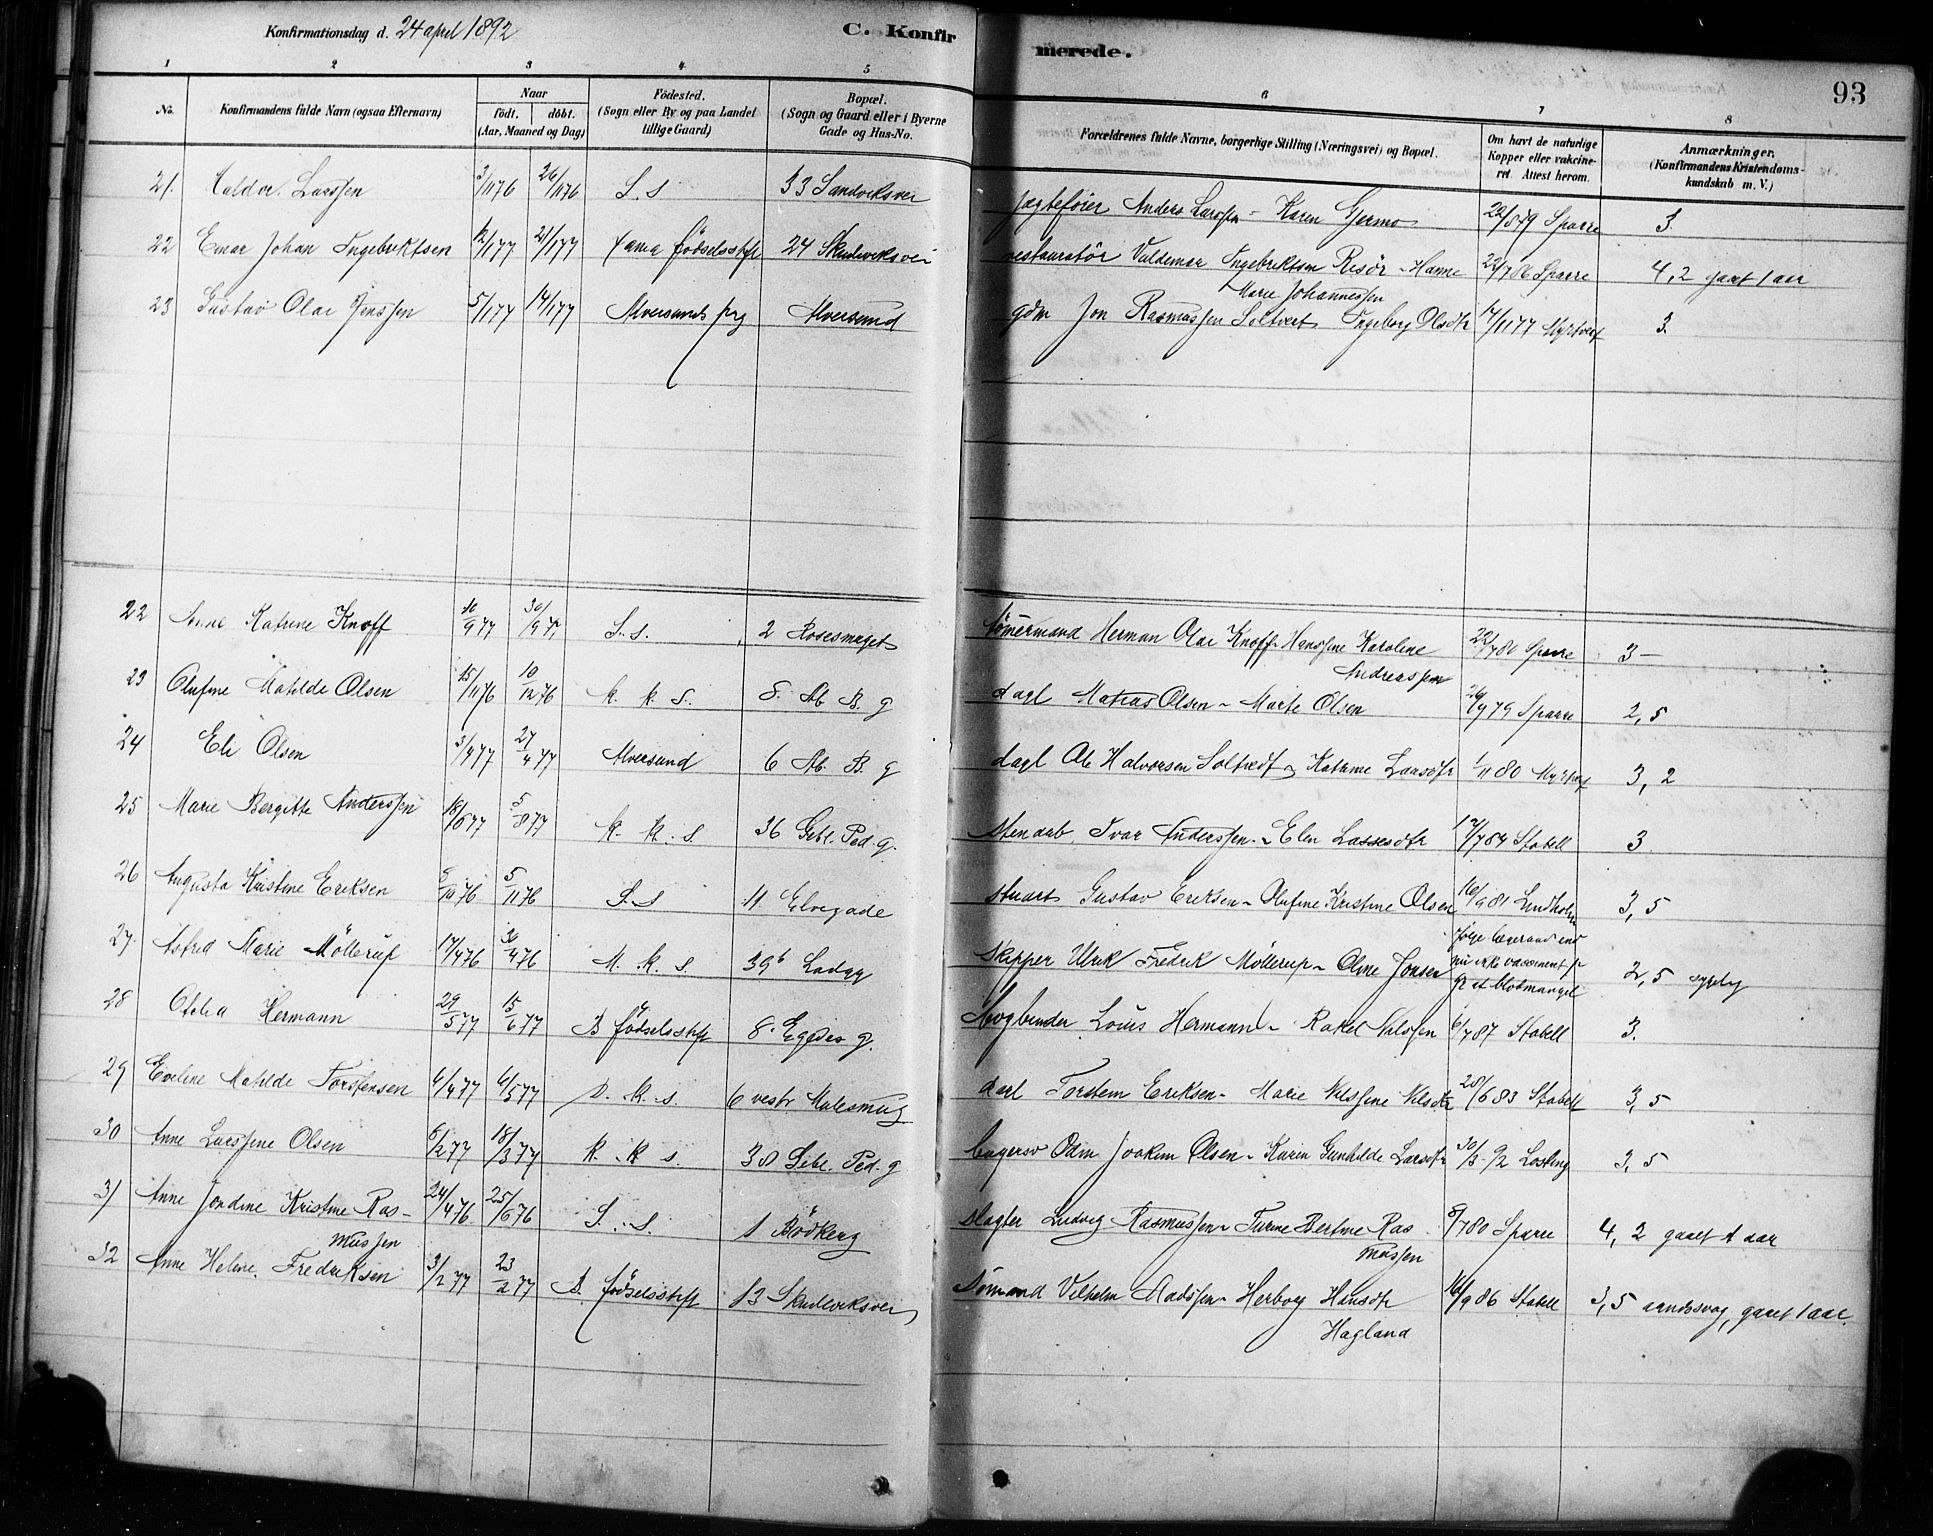 Konfirmationsdag d. 24 april 1892
C. Konfirmerede.
93
1 2 3 4 5 6 7 8
No. Konfirmandens fulde Navn (ogsaa Efternavn) Naar født. døbt. (Aar, Maaned og Dag) Fødested. (Sogn eller By og paa Landet tillige Gaard) Bopæl. (Sogn og Gaard eller i Byerne Gade og Hus-No. Forældrenes fulde Navne, borgerlige Stilling (Næringsvei) og Bopæl. Om havt de naturlige Kopper eller vakcineret. Attest herom. Anmærkninger. (Konfirmandens Kristendomskundskab m. V.)
21. Haldor Larssen 3/11 76 26/1176 S. s 33 Sandviksvei Jægtefører Anders Larssen - Karen Germo 22/5 79 Sparre 3.
22 Einar Johan Ingebriktsen 12/1 77 21/1 77 fødselsstift 24 Skudeviksvei restauratør Valdemar Ingebriktsen Risør - Hanne 22/7 86 Sparre 4,2 gaat 1 aar
Marie Johannessen
23 Gustav Olai Jenssen 5/1 77 14/1 77 Alversunds prg Alversund gdm Jon Rasmussen Soltvet Ingeborg Olsdtr 17/11 77 3.
22 Anne Katrine Knoff 10/9 77 30/9 77 S. s. 2 Rosesmuget tømermand Herman Olai Knoff - Hanssine Karoline 22/7 80 Sparre 3 -
Andreassen
23 Olufine Matilde Olsen 15/11 76 10/12 76 k. k. s. 8. Ab B. g dagl Matias Olsen - Marte Olsen 26/9 79 Sparre 2,5
24 Eli Olsen 3/4 77 27/4 77 Alversund 6 Ab. B. g dagl Ole Halvorsen Soltvedt - Katrine Larsdtr 1/11 80 3, 2
25 Marie Bergitte Anderssen 18/6 77 5/8 77 k. k. s. 36 Gebl. Ped. g. Stenarb. Ivar Anderssen - Elen Lassesdtr 17/7 84 Stabell 3
26 Augusta Kristine Eriksen 5/10 76 5/11 76 S. s 11. Elvegade stuart Gustav Eriksen - Olufine Kristine Olsen 16/9 81 Lindholm 3,5
27. Astred Marie Møllerup 17/4 76 30/4 76 M. k. s. 39b Ladeg Skipper Ulrik Fredrik Møllerup - Oline Jonsen ifølge lægeraad end nu ikke vaccineret pa gr af blodmangel 2,5 sygelig
28 Otelia Hermann 29/5 77 15/6 77 B fødselsstift 8. Egedes g. bogbinder Louis Hermann - Rakel Nilssen 6/7 87 Stabell 3.
29 Eveline Matilde Torstensen 6/4 77 6/5 77 D. k. s. 6 vestr. Malesmug darl Torstein Eriksen - Marie Nilssine Nilsdtr 28/6 83 Stabell 3,5
30 Anne Larssine Olsen 8/2 77 18/3 77 k. k s. 38 Gebl. Ped. g bagersv Odin Joakim Olsen - Karin Gunhilde Larsdtr 30/3 92 Losting 3, 5
31 Anne Jondine Kristine Ras- 24/4 76 25/6 76 S. s. 1 Bødkerg slagter Ludvig Rasmussen - Turine Bertine Ras 5/7 80 Sparre 4, 2 gaaet 1 aar
mussen mussen
32 Anne Helene. Fredriksen 3/2 77 23/2 77 B. fødselsstift 13 Skudeviksvei Sømand Vilhelm Madssen - Herborg Hansdtr 16/9 86 Stabell 3,5 aandssvag, gaaet 1 aar.
Hagland